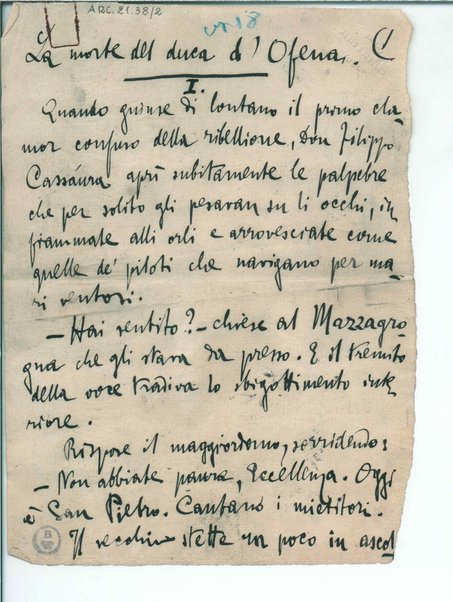 ARC.21.38/2
La morte del duca d'Ofena.
I.
Quando giunse di lontano il primo cla-
mor confuso della ribellione, Don Filippo
Cassáura aprì subitamente le palpebre
che per solito gli pesavan su li occhi, in-
fiammate alli orli e arrovesciate come
quelle de' piloti che navigano per ma-
ri ventosi.
— Hai sentito? — chiese al Mazzagro-
gna che gli stava da presso. E il tremito
della voce tradiva lo sbigottimento inte-
riore.
Rispose il maggiordomo, sorridendo:
— Non abbiate paura, Eccellenza. Oggi
è San Pietro. Cantano i mietitori.
Il vecchio stette un poco in ascol